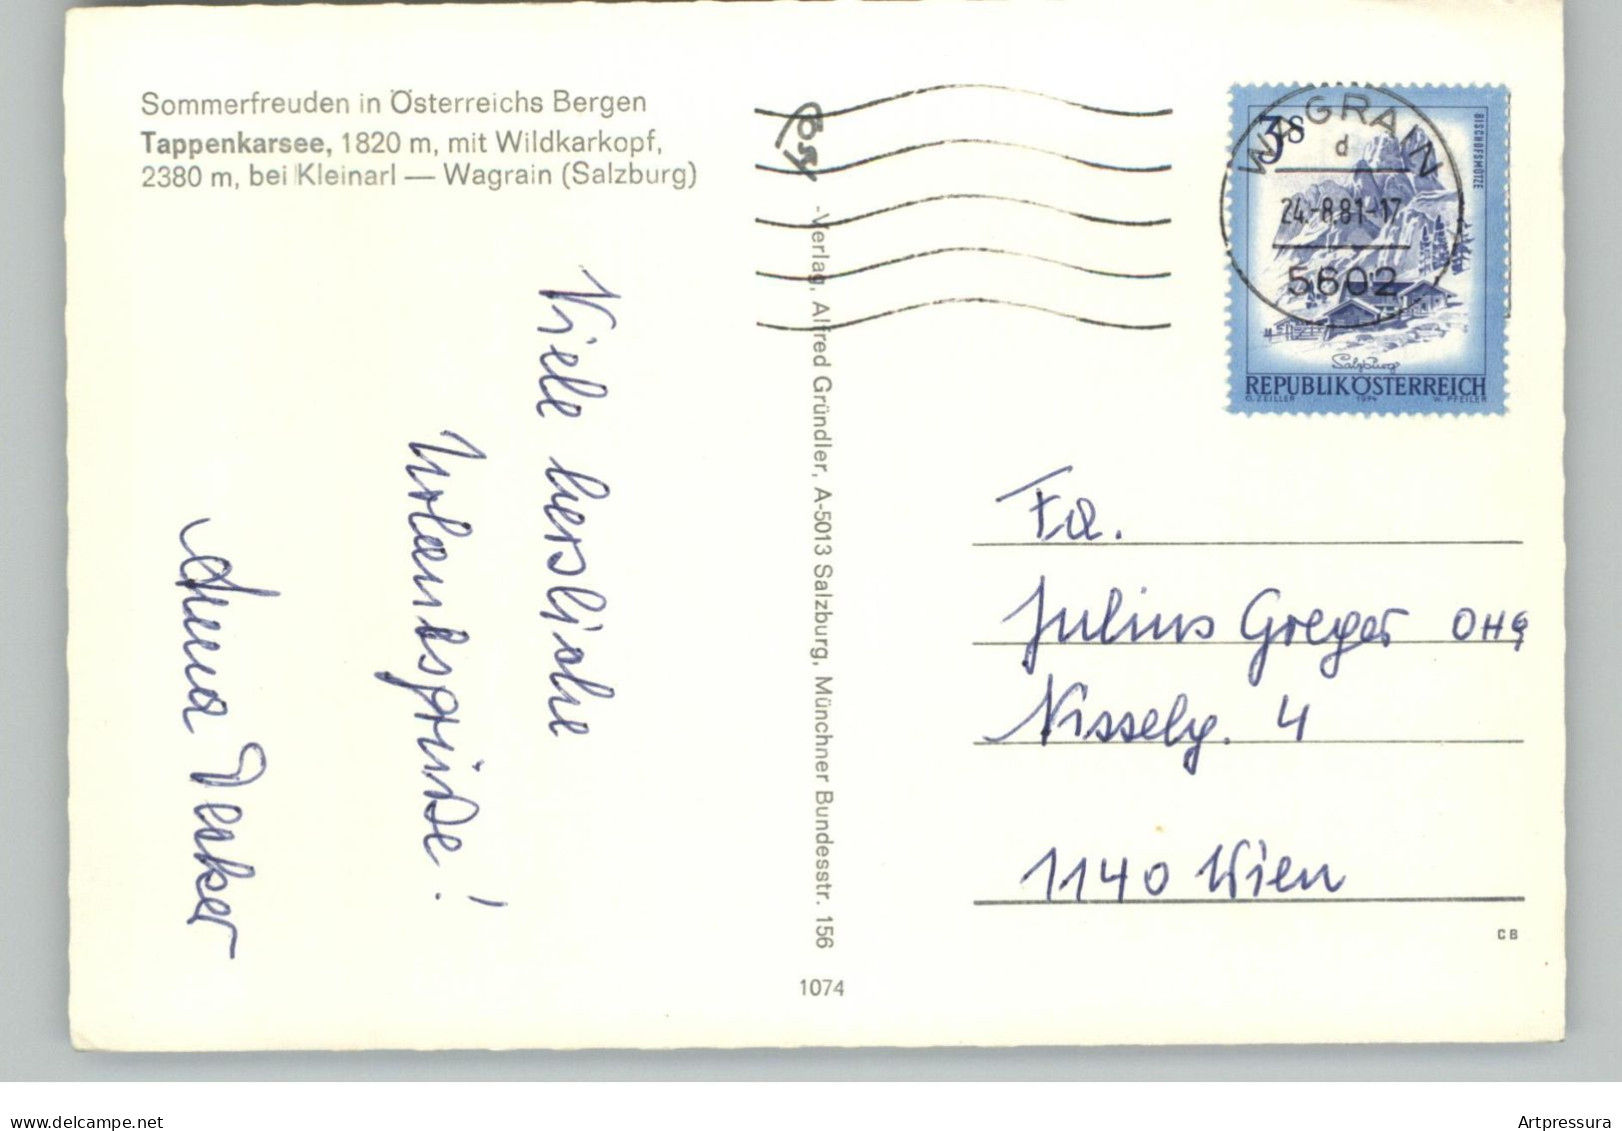 Sommerfreuden in Österreichs Bergen
Tappenkarsee, 1820 m, mit Wildkarkopf,
2380 m, bei Kleinarl — Wagrain (Salzburg)
Viele herzliche
Urlaubsgrüße!
Anna
-Verlag, Alfred Gründler, A-5013 Salzburg, Münchner Bundesstr. 156
1074
WAGRAIN
d
24.-8.81-17
5602
3
S
BISCHOFSMÜTZE
Salzburg
REPUBLIK ÖSTERREICH
O. ZEILLER 1974 W. PFEILER
Fa.
Julius Greger OHG
Nisselg. 4
1140 Wien
CB
delcampe.net
Artpressura